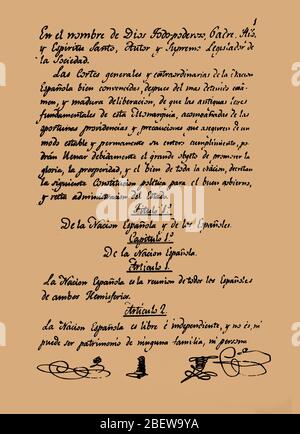 1
En el nombre de Dios Todopoderoso, Padre, Hijo
y Espiritu Santo, Autor y Supremo Legislador de
la Sociedad.
Las Cortes generales y extraordinarias de la Nacion
Española bien convencidas, despues del mas detenido exá-
men, y madura deliberacion, de que las antiguas leyes
fundamentales de esta Monarquia, acompañadas de las
oportunas providencias y precauciones que aseguren de un
modo estable y permanente su entero cumplimiento, po-
drán llenar debidamente el grande objeto de promover la
gloria, la prosperidad, y el bien de toda la nacion, decretan
la siguiente Constitucion politica para el buen gobierno,
y recta administracion del Estado.
Titulo 1º
De la Nacion Española y de los Españoles.
Capitulo 1º
De la Nacion Española.
Articulo 1.
La Nacion Española es la reunion de todos los Españoles
de ambos Hemisferios.
Articulo 2.
La Nacion Española es libre é independiente, y no es, ni
puede ser patrimonio de ninguna familia, ni persona
alamy
Image ID: 2BEW9YA
www.alamy.com